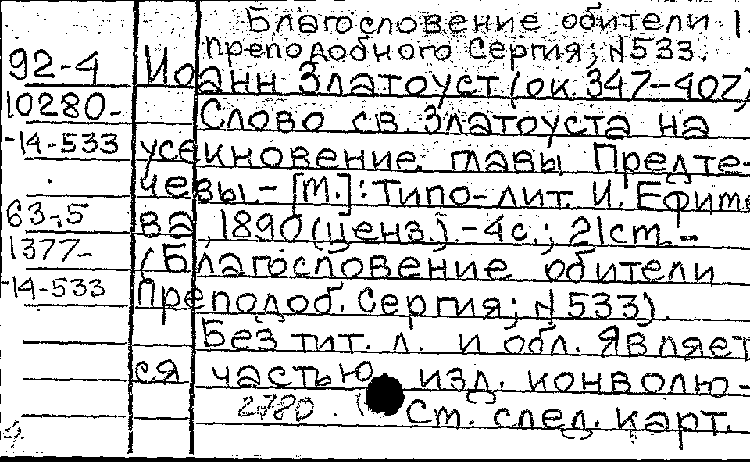 Благословение обители
преподобного Сергия; №533.
92-4 Иоанн Златоуст (ок. 347-407)
10280- Слово св. Златоуста на
-14-533 усекновение главы Предте-
чевы. - [М.]: Типо-лит. И. Ефимо
63-5 ва, 1890 (ценз.). - 4с.; 21см. -
1377- (Благословение обители
-14-533 Преподоб. Сергия; №533).
Без тит. л. и обл. Являет
ся частью изд. конволю-
2780. См. след. карт.